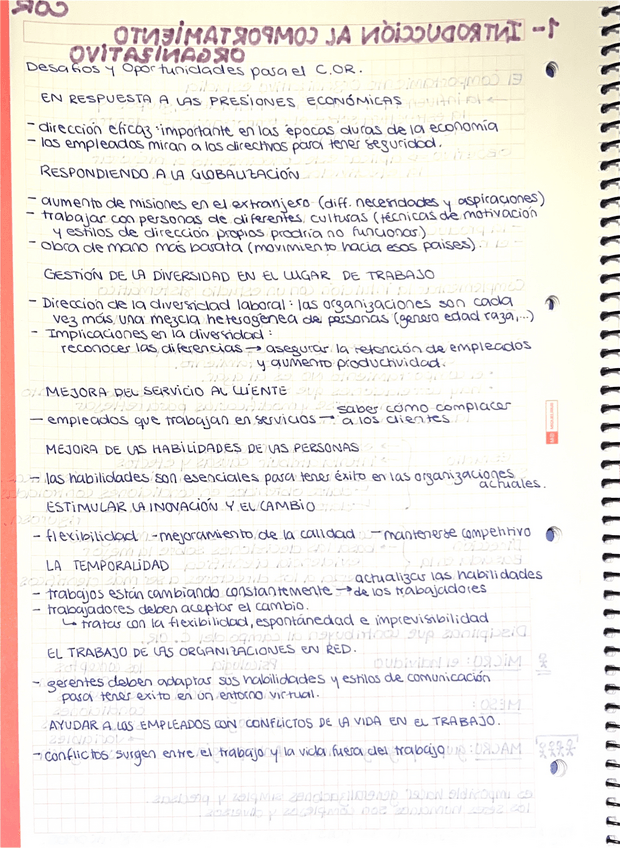 COR
1- INTRODUCCIÓN AL COMPORTAMIENTO
ORGANIZATIVO
Desafios y oportunidades para el C.OR.
EN RESPUESTA A LAS PRESIONES ECONÓMICAS
- dirección eficaz: importante en las épocas duras de la economía
- los empleados miran a los directivos para tener seguridad.
RESPONDIENDO A LA GLOBALIZACIÓN
- aumento de misiones en el extranjero (diff. necesidades y aspiraciones)
- trabajar con personas de diferentes culturas (técnicas de motivación
y estilos de dirección propios prodria no funcionar)
- obra de mano más barata (movimiento hacia esos paises).
GESTIÓN DE LA DIVERSIDAD EN EL LUGAR DE TRABAJO
- Dirección de la diversidad laboral: las organizaciones son cada
vez más una mezcla heterogénea de personas (genero edad raza,...)
- Implicaciones en la diversidad:
reconocer las diferencias → asegurar la retención de empleados
y aumento productividad.
MEJORA DEL SERVICIO AL CLIENTE
- empleados que trabajan en servicios → saber cómo complacer
a los clientes
MEJORA DE LAS HABILIDADES DE LAS PERSONAS
- las habilidades son esenciales para tener éxito en las organizaciones
actuales.
ESTIMULAR LA INOVACIÓN Y EL CAMBIO
- flexibilidad - mejoramiento de la calidad - mantenerse competitivo
LA TEMPORALIDAD
- trabajos están cambiando constantemente → actualizar las habilidades
de los trabajadores
- trabajadores deben aceptar el cambio.
↳ tratar con la flexibilidad, espontánedad e imprevisibilidad
EL TRABAJO DE LAS ORGANIZACIONES EN RED.
- gerentes deben adaptar sus habilidades y estilos de comunicación
para tener exito en un entorno virtual.
AYUDAR A LOS EMPLEADOS CON CONFLICTOS DE LA VIDA EN EL TRABAJO.
- conflictos surgen entre el trabajo y la vida fuera del trabajo